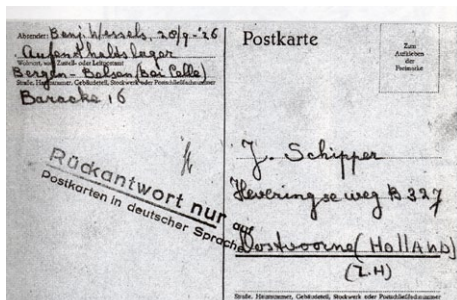 Absender: Benj. Wessels, 20/9-'26
Aufenthaltslager
Wohnort, auch Zustell- oder Leitpostamt
Bergen-Belsen (bei Celle)
Straße, Hausnummer, Gebäudeteil, Stockwerk oder Postschließfachnummer
Baracke 16
Rückantwort nur auf
Postkarten in deutscher Sprache
Postkarte
Zum
Aufkleben
der
Postmarke
J. Schipper
Heveringseweg B 327
Oostvoorne (HOLLAND)
(Z.H)
Straße, Hausnummer, Gebäudeteil, Stockwerk oder Postschließfachnummer